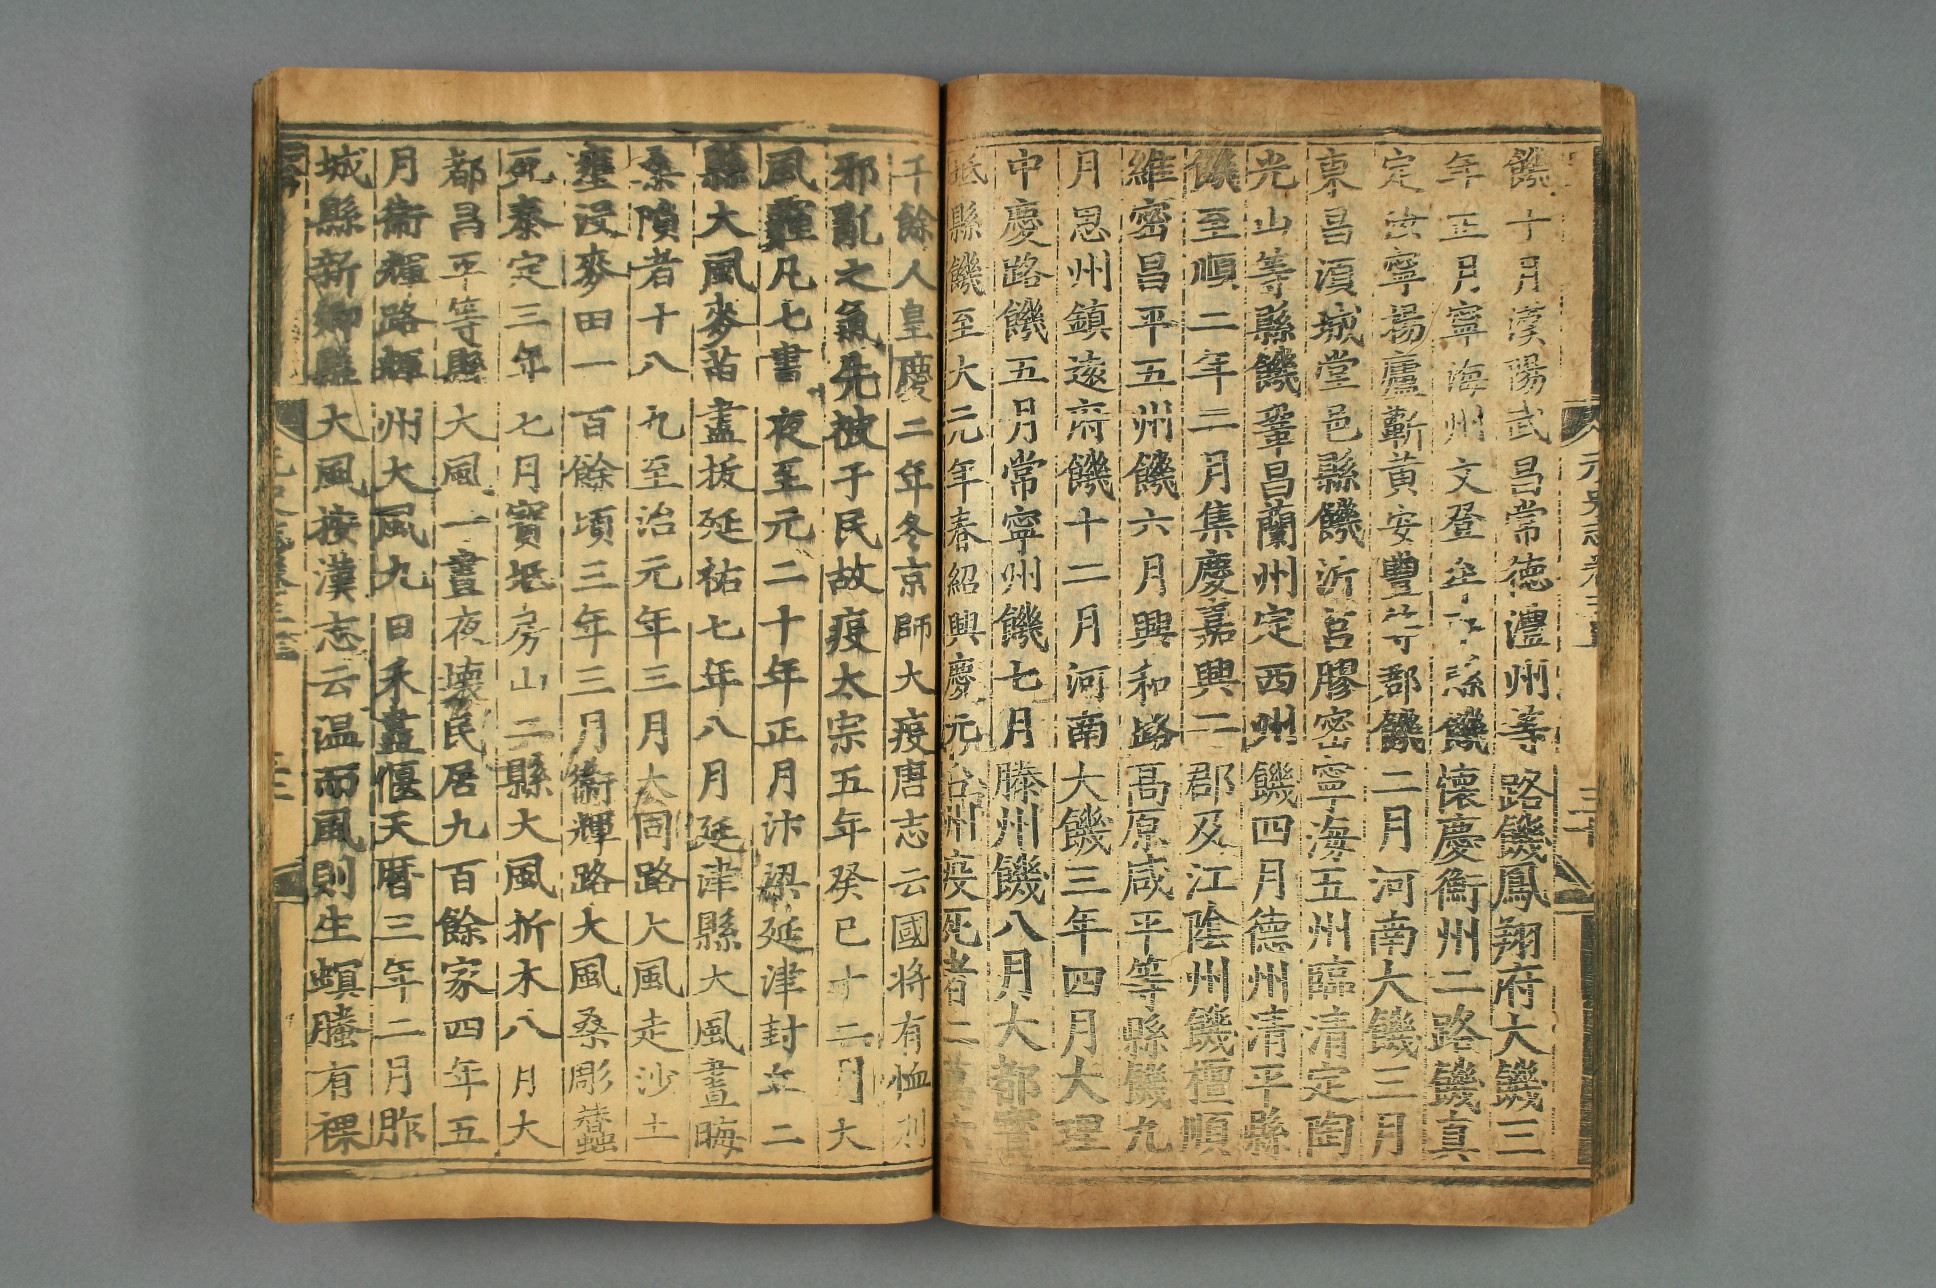 饑十月漢陽武昌常德澧州等路饑鳳翔府大饑三
年正月寧海州文登牟平縣饑懷慶衡州二路饑真
定汝寧揚廬蘄黃安豐等郡饑二月河南大饑三月
東昌須城堂邑縣饑沂莒膠密寧海五州臨清定陶
光山等縣饑鞏昌蘭州定西州饑四月德州清平縣
饑至順二年二月集慶嘉興二郡及江陰州饑檀順
維密昌平五州饑六月興和路高原咸平等縣饑九
月思州鎮遠府饑十二月河南大饑三年四月大理
中慶路饑五月常寧州饑七月滕州饑八月大都寶
坻縣饑至大元年春紹興慶元台州疫死者二萬六
千餘人皇慶二年冬京師大疫唐志云國將有恤則
邪亂之氣先被于民故疫太宗五年癸巳十二月大
風霾凡七晝夜至元二十年正月汴梁延津封丘二
縣大風麥苗盡拔延祐七年八月延津縣大風晝晦
桑隕者十八九至治元年三月大同路大風走沙土
壅沒麥田一百餘頃三年三月衞輝路大風桑彫蠶
死泰定三年七月寶坻房山二縣大風折木八月大
都昌平等縣大風一晝夜壞民居九百餘家四年五
月衞輝路輝州大風九日禾盡偃天曆三年二月胙
城縣新鄉縣大風按漢志云温而風則生螟螣有裸